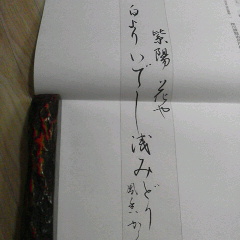 紫陽花や
白よりいでし浅みどり